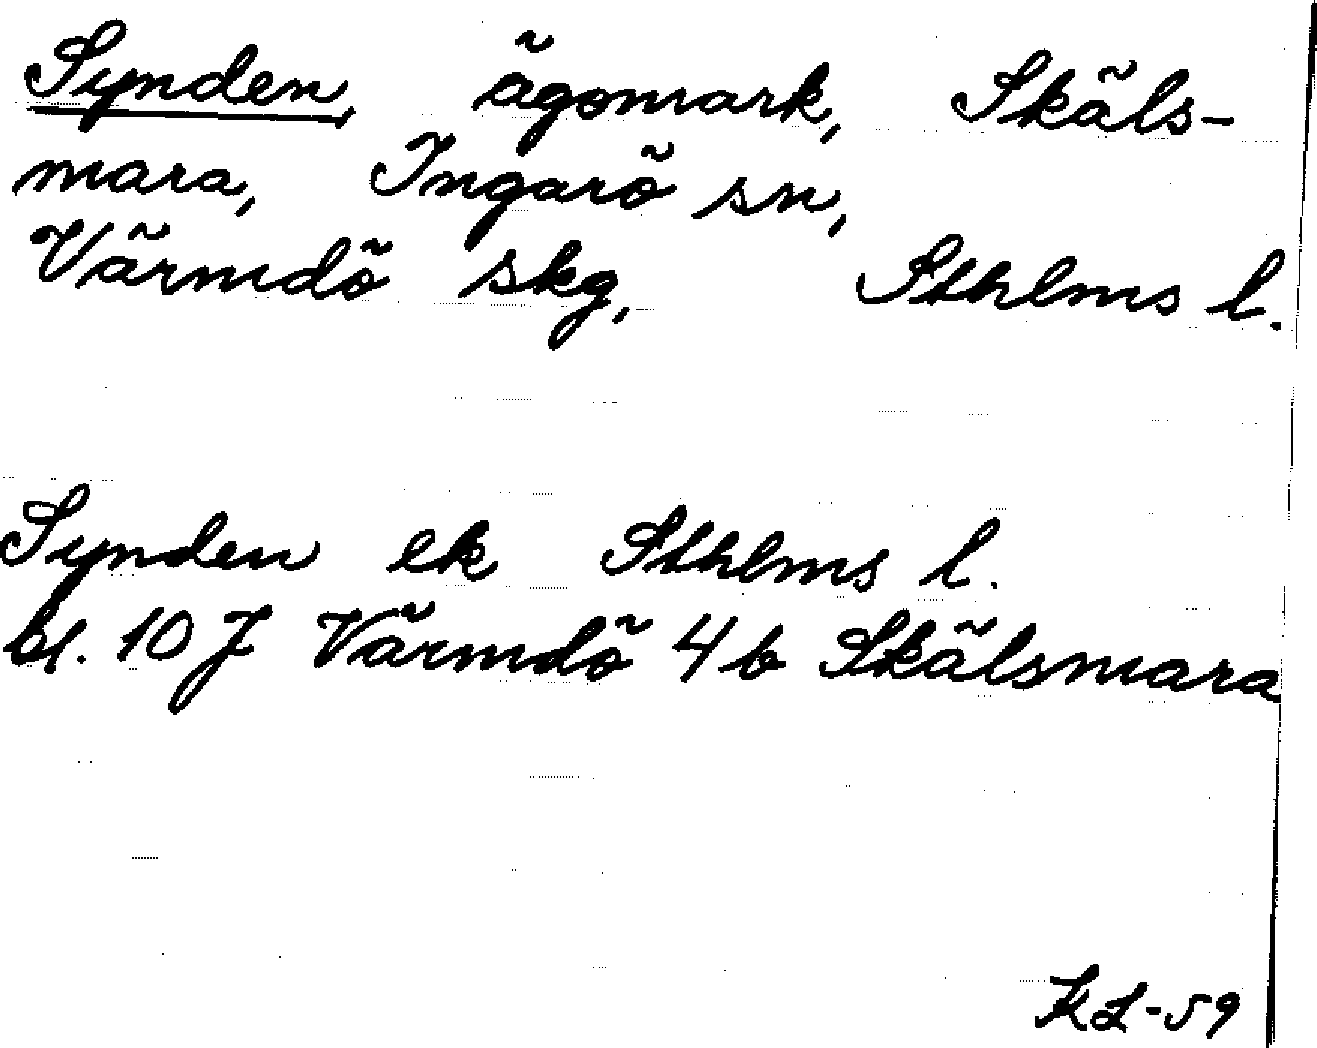 Synden, ägomark, Skäls-
mara, Ingarö sn,
Värmdö skg, Sthlms l.
Synden ek Sthlms l.
bl. 10 J Värmdö 4 b Skälsmara
KL-59